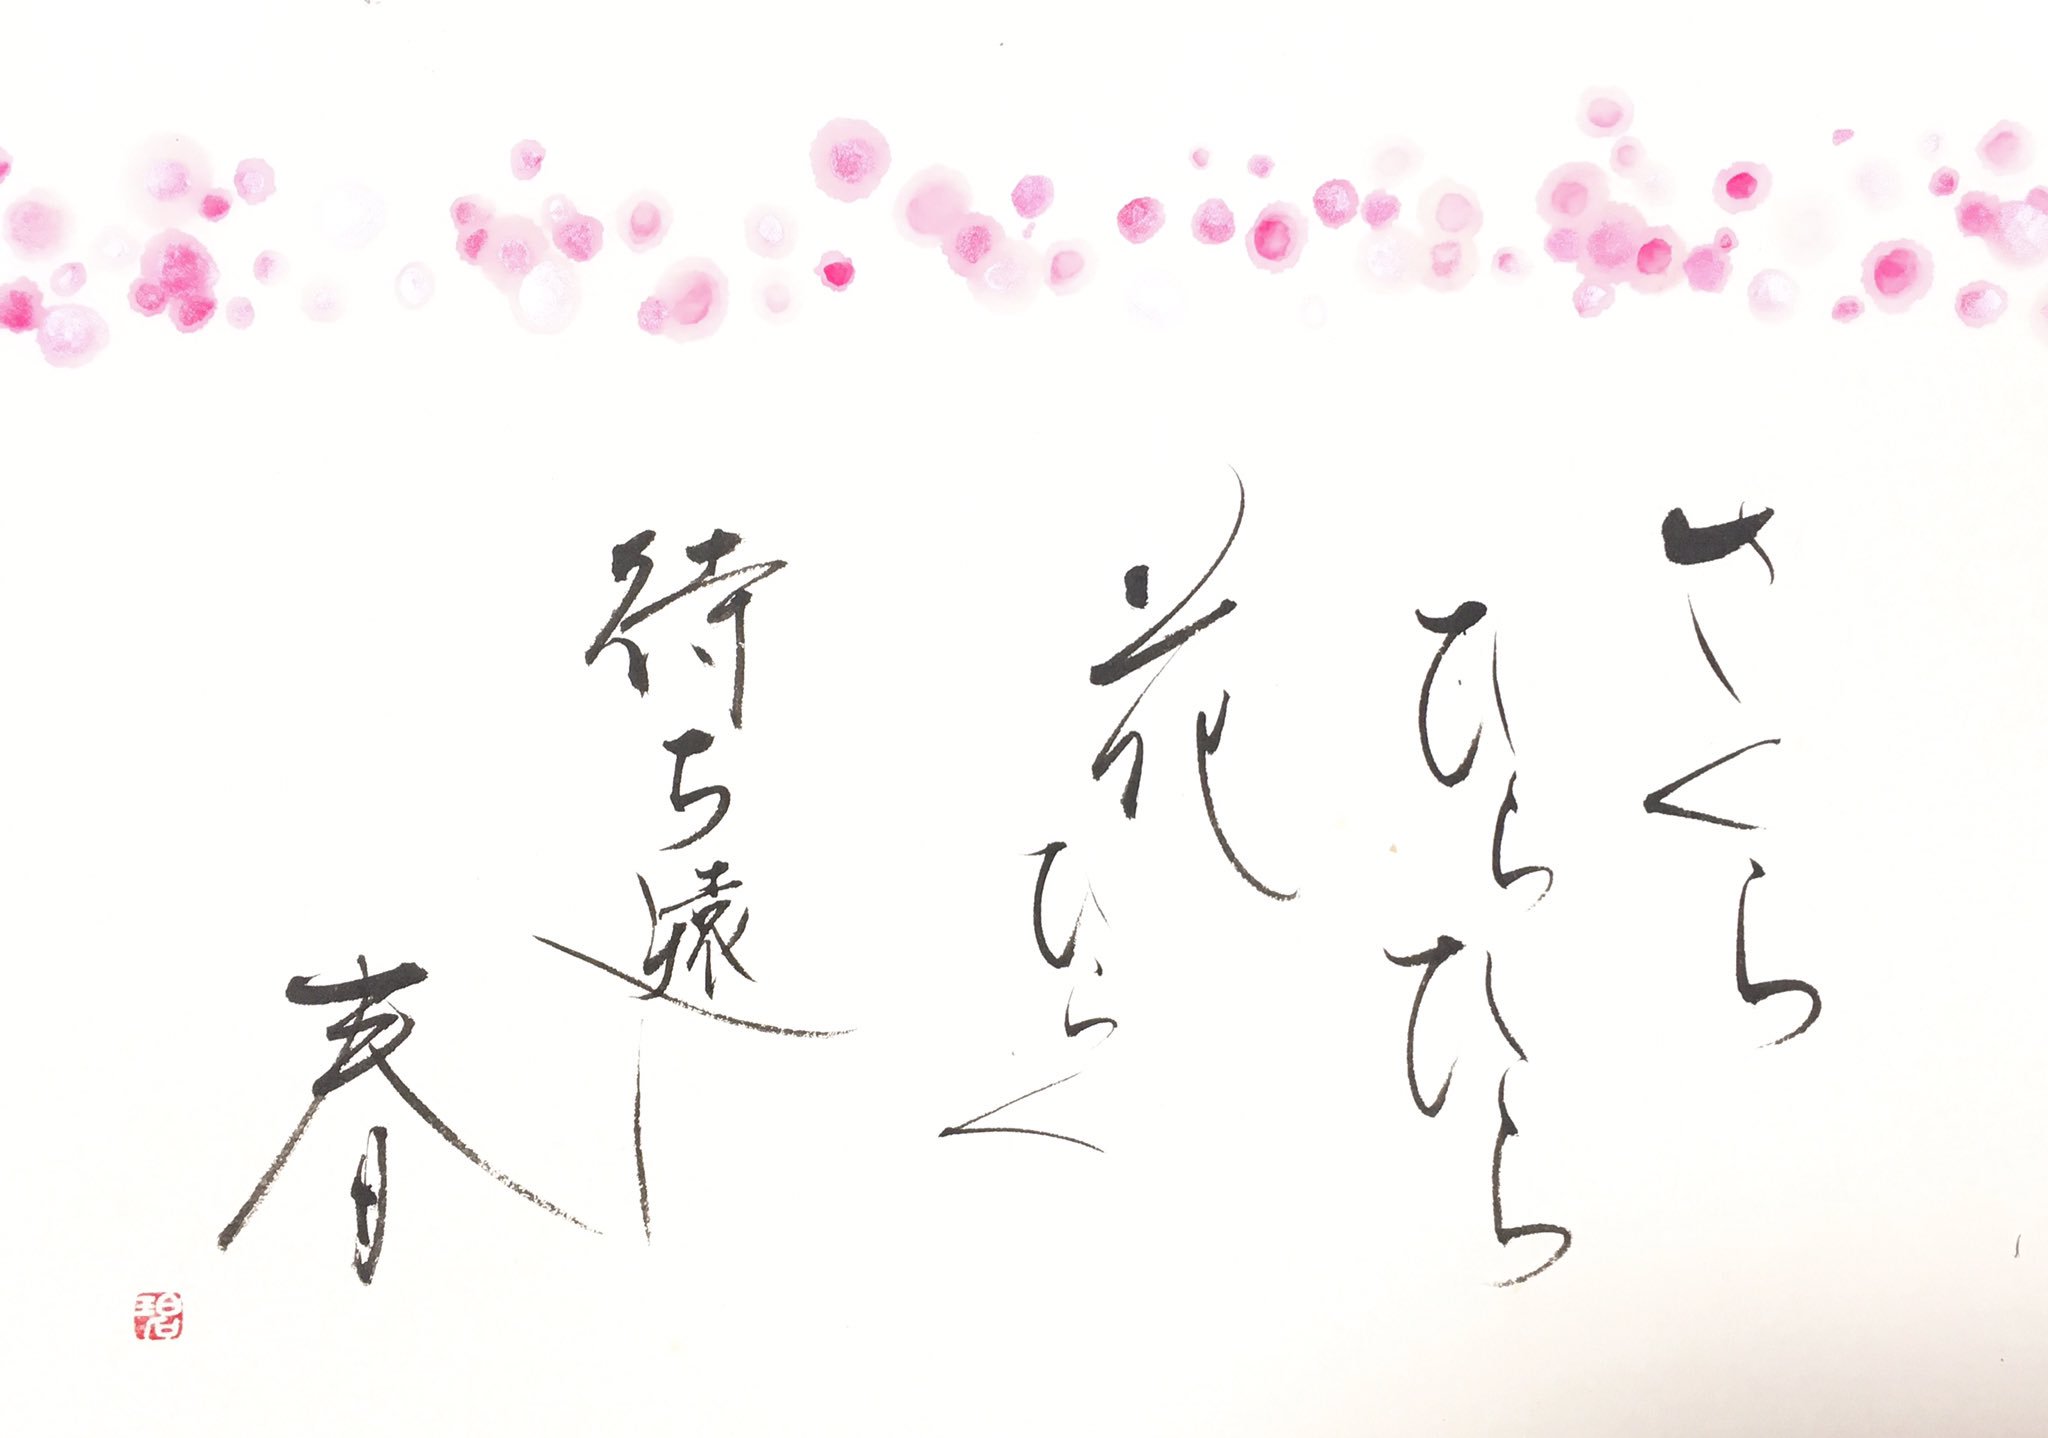 さくら
ひらひら
花ひらく
待ち遠し
春
碧